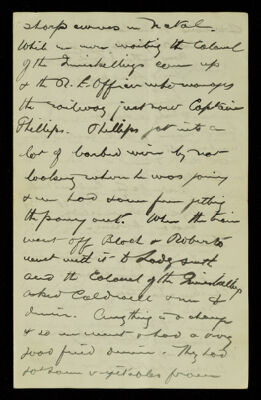 sharp curves in Natal.
While we were waiting the Colonel
of the Inniskillings came up
& the R. E. Officer who manages
the railway just now Captain
Phillips. Phillips got into a
lot of barbed wire by not
looking where he was going
& we had some fun getting
the pony out. When the train
went off Block & Roberts
went with it to Ladysmith
and the Colonel of the Inniskillings
asked Caldwell & me to
dinner. Anything is a change
& so we went & had a very
good fried dinner. They had
got some vegetables from